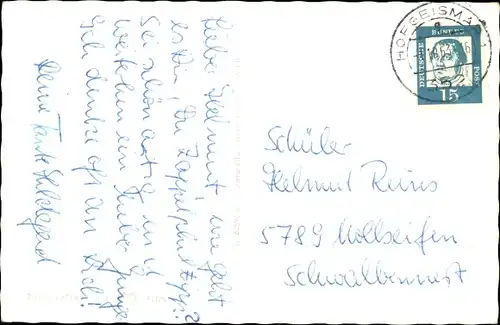 Lieber Helmut, wie geht
es Dir, Du Zappelphilipp?
Sei schön artig u. sei
weiterhin ein lieber Junge
Ich denke oft an Dich!
Deine Tante Hildegard
HOFGEISMAR
DEUTSCHE BUNDESPOST
15
Schüler
Helmut Reins
5789 Mollseifen
Schwalbennest